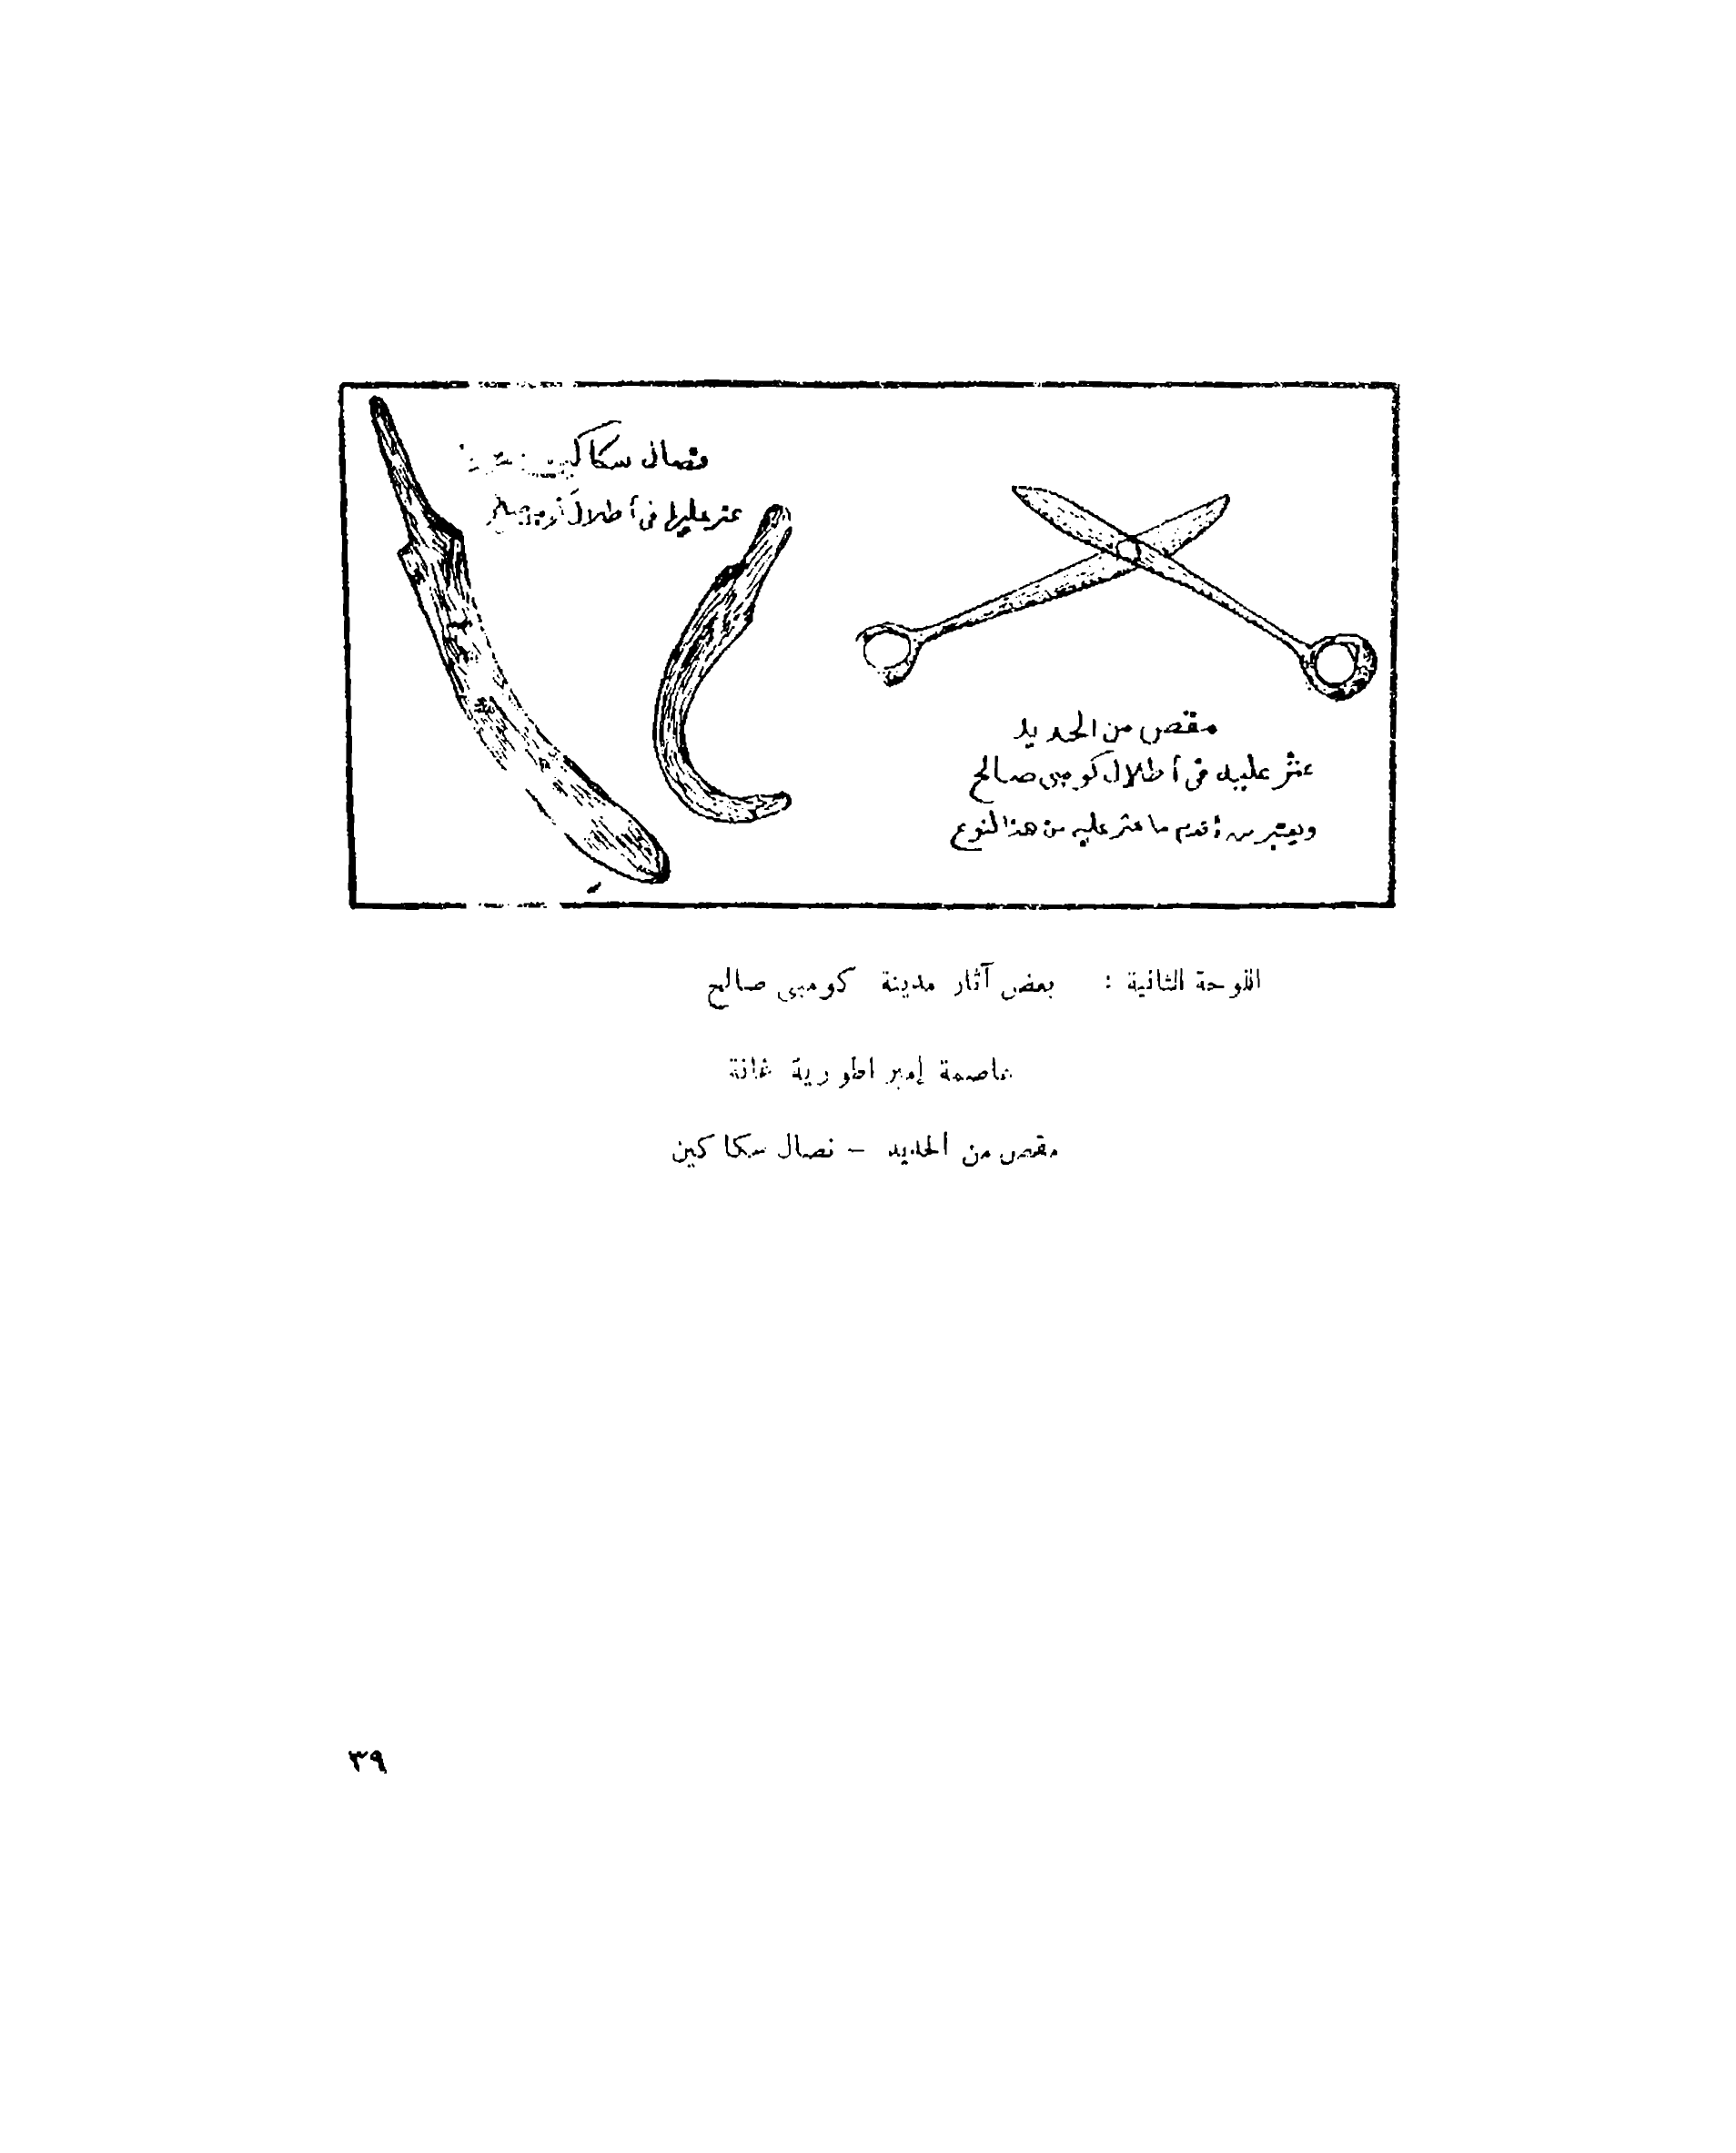 نصال سكاكين
عثر عليها فى أطلال كومبى صالح
مقص من الحديد
عثر عليه فى أطلال كومبى صالح
ويعتبر من أقدم ما عثر عليه من هذا النوع
اللوحة الثانية : بعض آثار مدينة كومبى صالح
عاصمة إمبراطورية غانة
مقص من الحديد – نصال سكاكين
٣٩